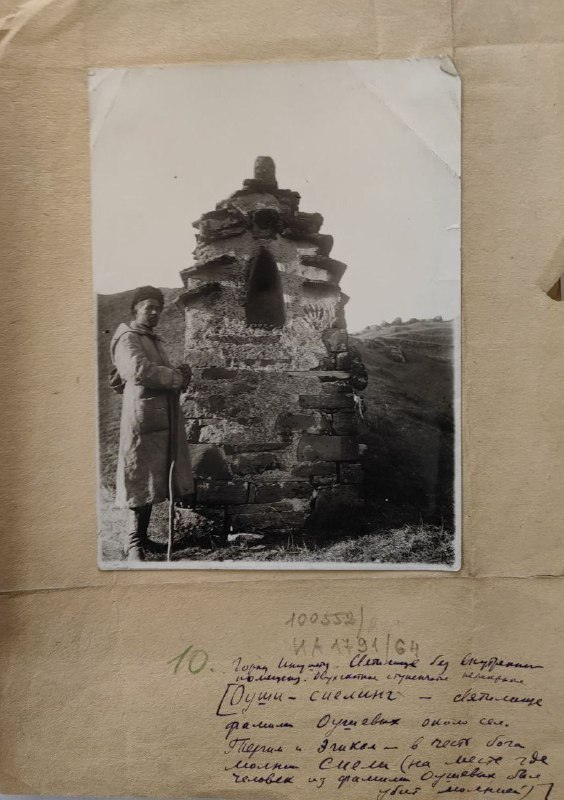 100552/
ИА 1791/64
10. Горная Ингушет. Святилище без внутреннего
помещения. Двускатное ступенчатое перекрытие
[Оуши-сиелинг – святилище
фамилии Оушевых около сел.
Тергим и Эгикал – в честь бога
молнии Сиели (на месте где
человек из фамилии Оушевых был
убит молнией)]